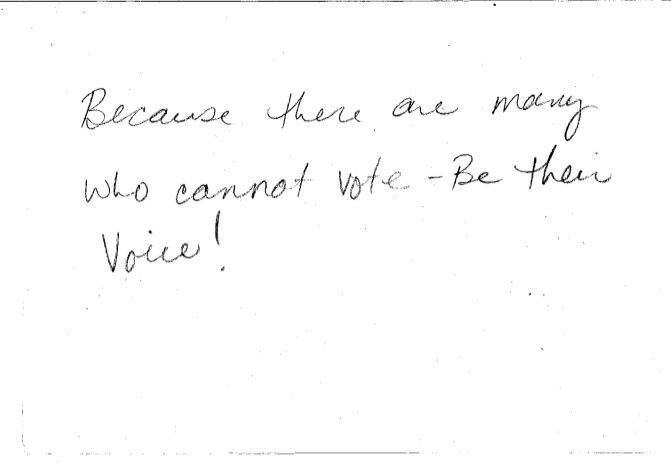 Because there are many
who cannot vote - Be their
Voice!